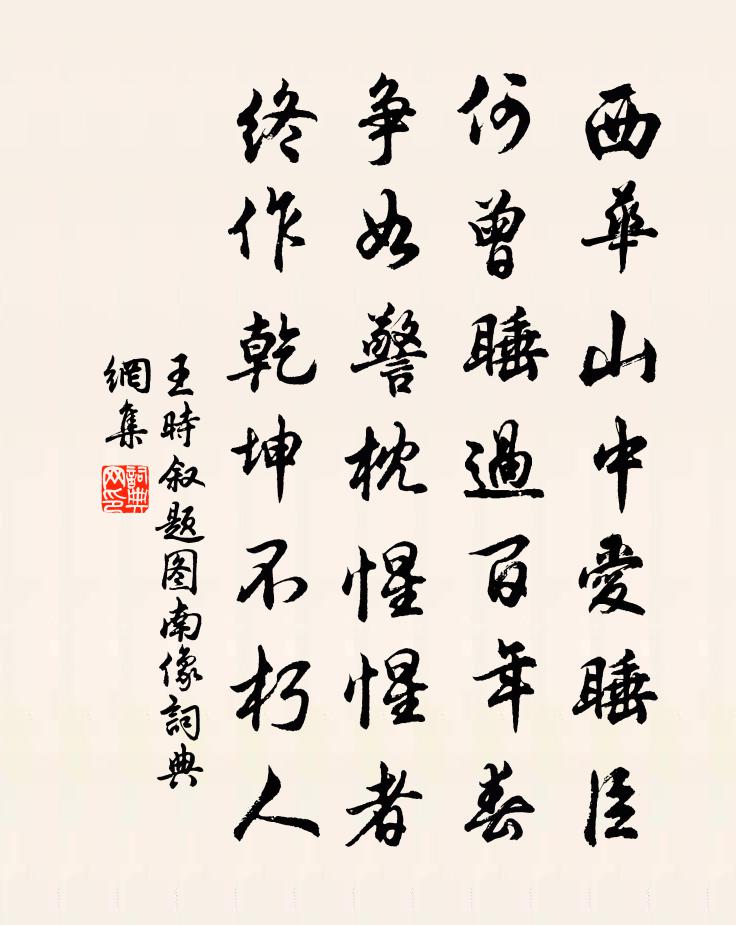 西華山中愛睡臣
何曾睡過百年春
争如警枕惺惺者
终作乾坤不朽人
王時叙题图南像詞典
網集
詞典
网印